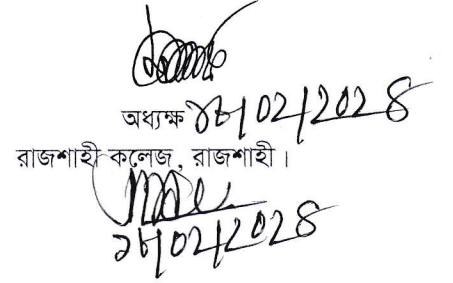 অধ্যক্ষ ১৮/০২/২০২৪
রাজশাহী কলেজ, রাজশাহী।
১৮/০২/২০২৪